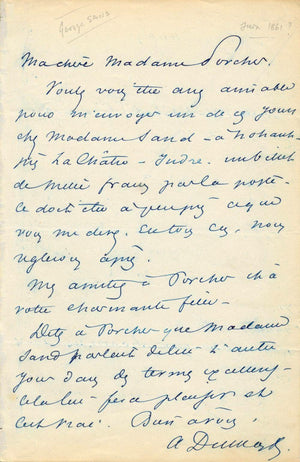 George Sand
Juin 1861?
Ma chère Madame Porcher.
Voulez vous être assez aimable
pour m'envoyer un de ces jours
chez Madame Sand - à Nohant -
près La Châtre - Indre. un billet
de mille francs par la poste -
ce doit être à peu près ce que
vous me devez. En tous cas, nous
règlerons après.
Mes amitiés à Porcher et à
votre charmante fille -
Dites à Porcher que Madame
Sand parlait de lui l'autre
jour dans des termes excellens -
cela lui fera plaisir et
c'est vrai. Bien à vous,
A Dumas f.